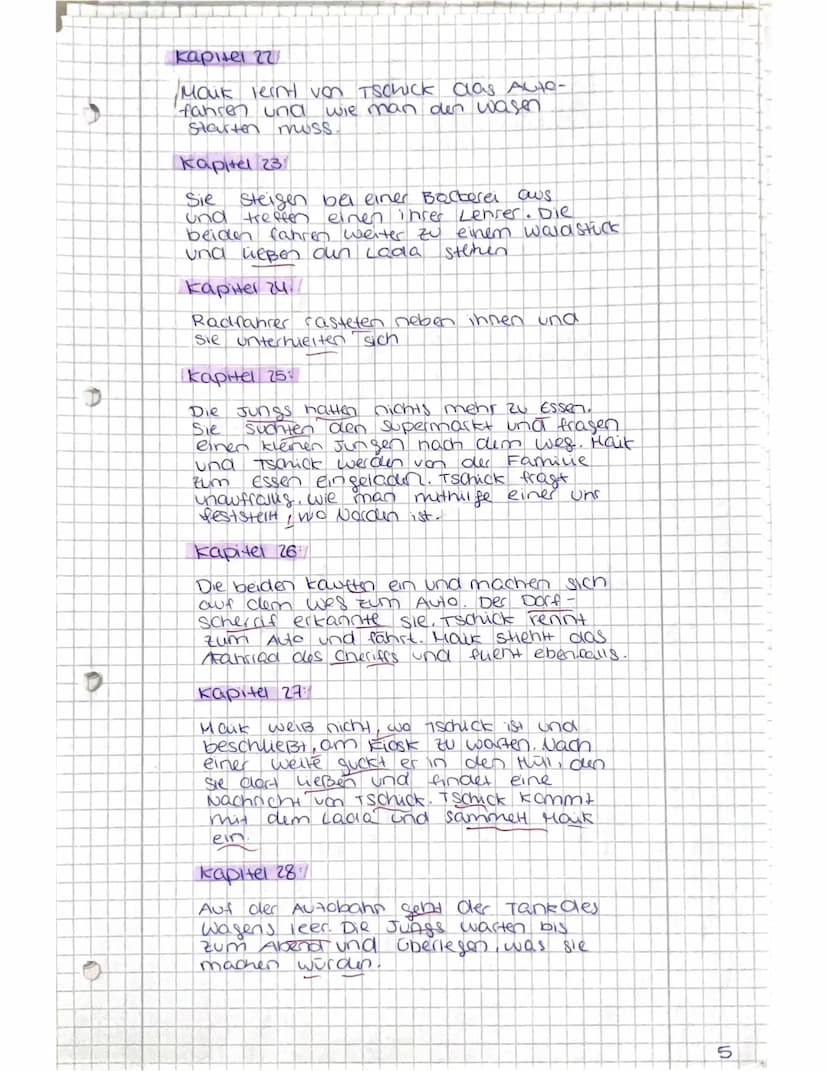 Kapitel 22:
Maik lernt von Tschick das Auto-
fahren und wie man den Wagen
starten muss.
Kapitel 23:
Sie steigen bei einer Bäckerei aus
und treffen einen ihrer Lehrer. Die
beiden fahren weiter zu einem Waldstück
und ließen den Lada stehen
Kapitel 24:
Radfahrer rasteten neben ihnen und
sie unterhielten sich
Kapitel 25:
Die Jungs hatten nichts mehr zu Essen.
Sie suchten den Supermarkt und fragen
einen kleinen Jungen nach dem Weg. Maik
und Tschick werden von der Familie
zum Essen eingeladen. Tschick fragt
unauffällig, wie man mithilfe einer Uhr
feststellt, wo Norden ist.
Kapitel 26:
Die beiden kauften ein und machen sich
auf dem Weg zum Auto. Der Dorf-
scherrif erkannte sie. Tschick rennt
zum Auto und fährt. Maik stiehlt das
Fahrrad des Cheriffs und flieht ebenfalls.
Kapitel 27:
Maik weiß nicht, wo Tschick ist und
beschließt, am Kiosk zu warten. Nach
einer Weile guckt er in den Müll, den
sie dort ließen und findet eine
Nachricht von Tschick. Tschick kommt
mit dem Lada und sammelt Maik
ein.
Kapitel 28:
Auf der Autobahn geht der Tank des
Wagens leer. Die Jungs warten bis
zum Abend und überlegen, was sie
machen würden.
5